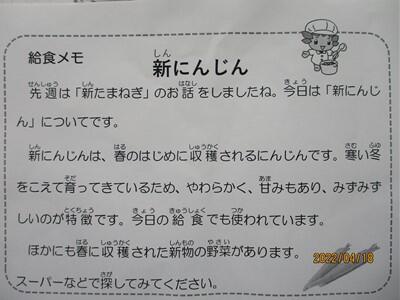 給食メモ
新にんじん
先週は「新たまねぎ」のお話をしましたね。今日は「新にんじ
ん」についてです。
新にんじんは、春のはじめに収穫されるにんじんです。寒い冬
をこえて育ってきているため、やわらかく、甘みもあり、みずみず
しいのが特徴です。今日の給食でも使われています。
ほかにも春に収穫された新物の野菜があります。
スーパーなどで探してみてください。
2022/04/18